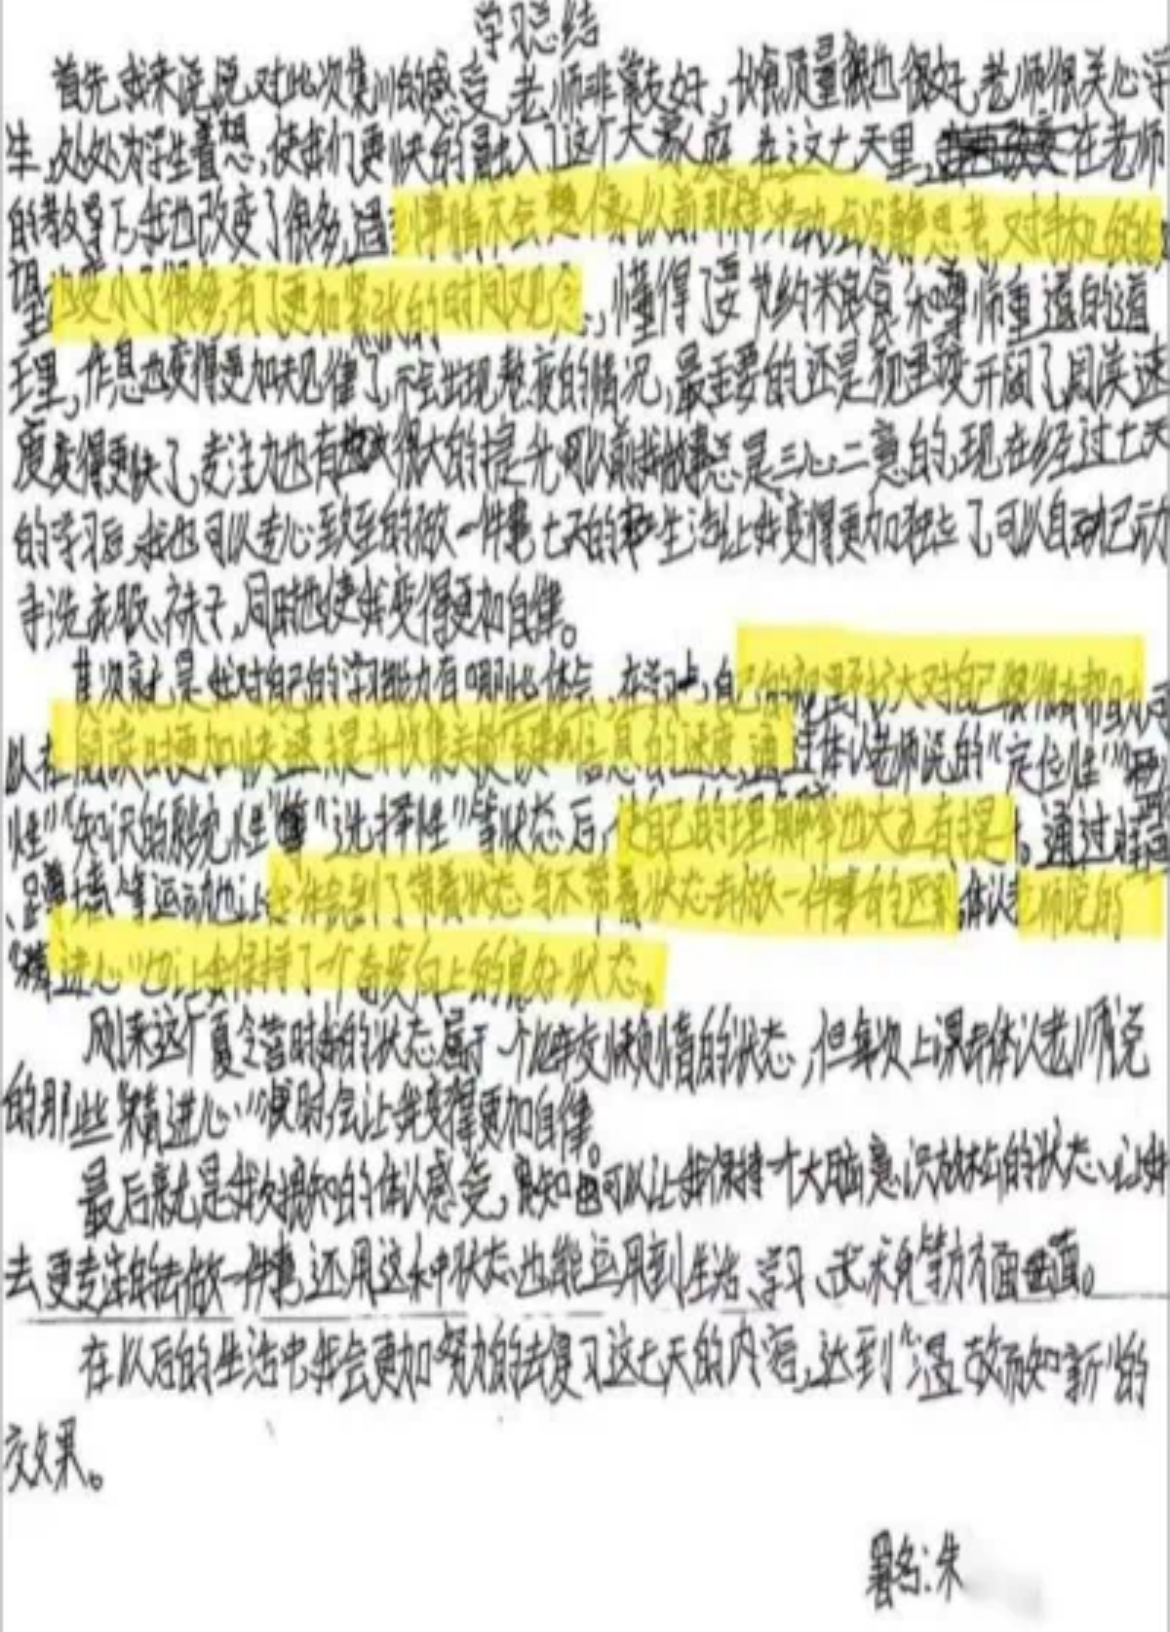 学习总结
首先我来说说对此次集训的感受,老师非常友好,伙食质量也很好,老师很关心学
生,处处为学生着想,使我们更快的融入了这个大家庭,在这七天里,在老师
的教导下,我也改变了很多,遇到事情不会想像以前那样冲动,会冷静思考,对手机的欲
望也变小了很多,有了更加紧张的时间观念,懂得了要节约粮食和尊师重道的道
理,作息也变得更加规律了,不会出现熬夜的情况,最主要的还是视野变开阔了,阅读速
度变得更快了,专注力也有很大的提升,以前我做事总是三心二意的,现在经过七天
的学习后,我也可以专心致至的做一件事,七天的生活让我变得更加独立了,可以自己动
手洗衣服、袜子,同时也使我变得更加自律。
其次就是我对自己的学习能力有哪些体会,在学习上,自己的视野扩大对自己很有帮助,可
以在阅读时更加快速,提升收集关键信息的速度,通过体认老师说的“定位性”
性”“知识的系统性”“选择性”等状态后,使自己的理解率也大五有提。通过
、等运动也让我体会到了带着状态与不带着状态去做一件事的区别,体认老师说的
“精进心”也让我保持了一个奋发向上的良好状态。
刚来这个夏令营时我的状态属于一个比较懒惰的状态,但每次上课去体认老师说
的那些“精进心”状时会让我变得更加自律。
最后就是我对的体认感受,可以让我保持一个大脑意识放松的状态,让我
去更专注的去做一件事,还用这种状态也能运用到生活、学习、等方方面面。
在以后的生活中我会更加努力的去复习这七天的内容,达到“温故而知新”的
效果。
署名:朱